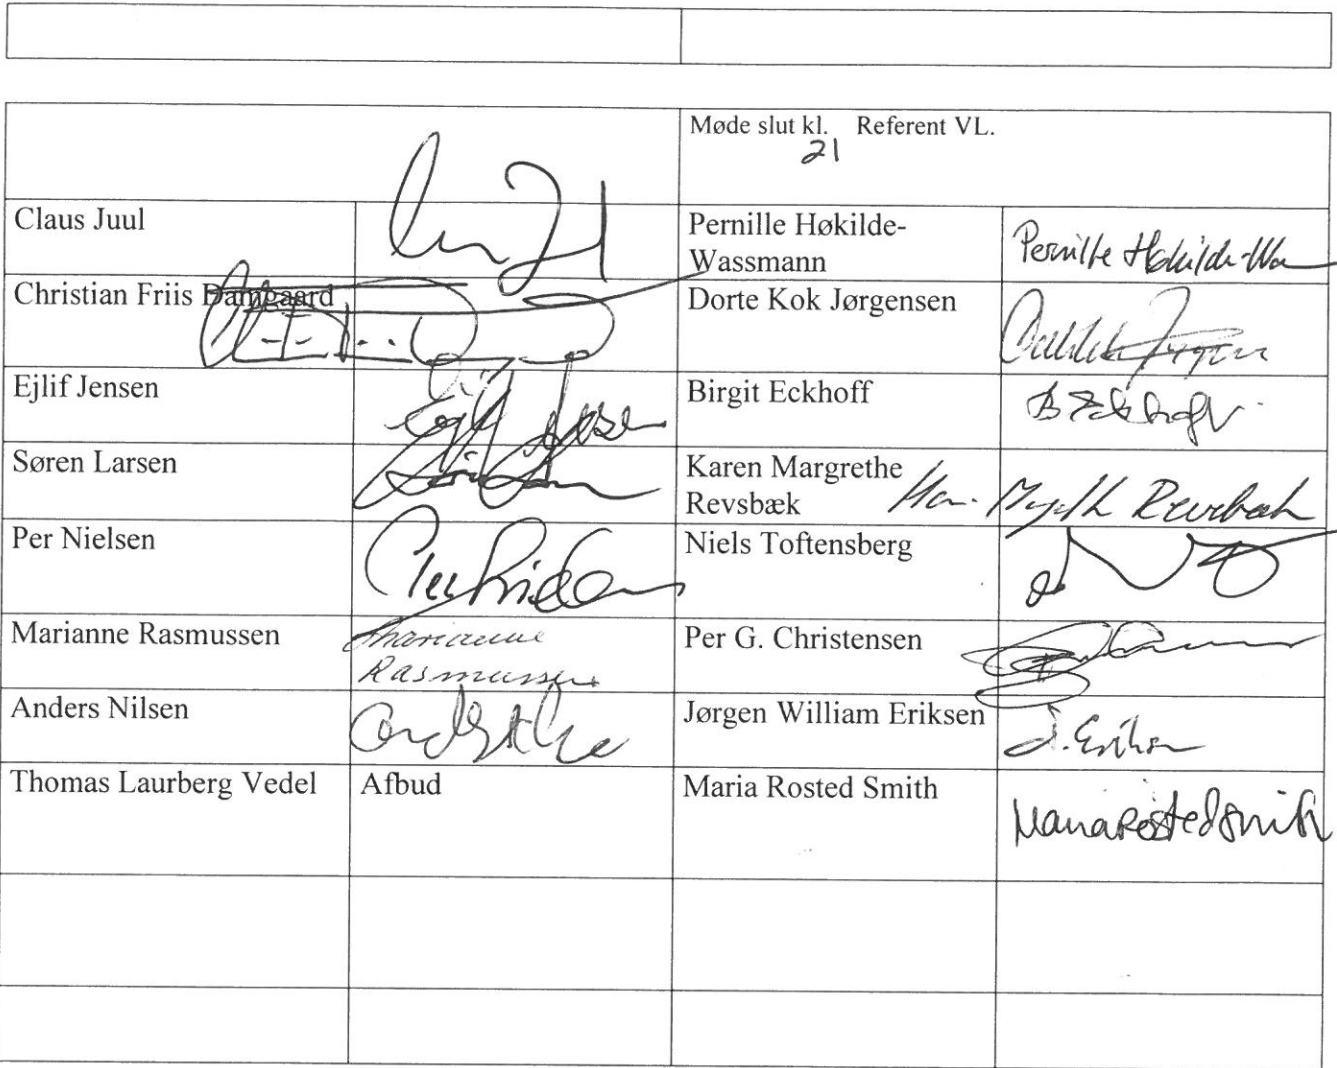 Møde slut kl. Referent VL.
21
Claus Juul
Pernille Høkilde-
Wassmann
Pernille Høkilde-Wa
Christian Friis Damgaard
Dorte Kok Jørgensen
Ejlif Jensen
Birgit Eckhoff
B Eckhoff
Søren Larsen
Karen Margrethe
Revsbæk
Revsbæk
Per Nielsen
Niels Toftensberg
Marianne Rasmussen
Marianne
Rasmussen
Per G. Christensen
Anders Nilsen
Jørgen William Eriksen
J. Eriksen
Thomas Laurberg Vedel
Afbud
Maria Rosted Smith
Maria Rosted Smith